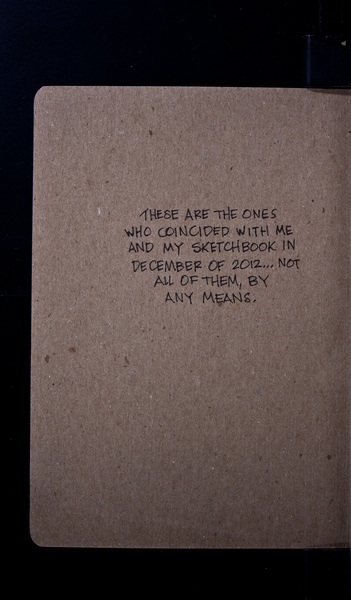 THESE ARE THE ONES
WHO COINCIDED WITH ME
AND MY SKETCHBOOK IN
DECEMBER OF 2012... NOT
ALL OF THEM, BY
ANY MEANS.